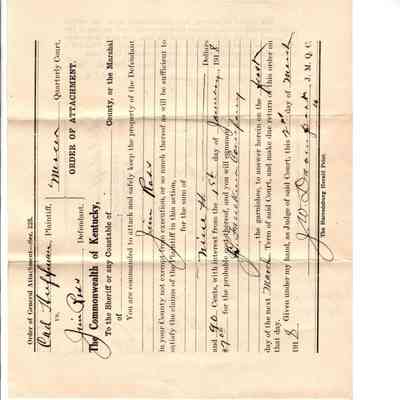 Order of General Attachment—Sec. 228.
Plaintiff,
vs.
Jim Ross Defendant.
Mercer Quarterly Court.
ORDER OF ATTACHMENT.
The Commonwealth of Kentucky,
To the Sheriff or any Constable of County, or the Marshal
of
You are commanded to attach and safely keep the property of the Defendant
Jim Ross
in your County not exempt from execution, or so much thereof as will be sufficient to
satisfy the claims of the Plaintiff in this action,
for the sum of
Dollars
and 90 Cents, with interest from the 1st day of January 1918
for the probable and you will summon
Company
, the garnishee, to answer herein on the first
day of the next March Term of said Court, and make due return of this order on
that day.
Given under my hand, as Judge of said Court, this day of March
1918
J. M. Q. C.
The Harrodsburg Herald Print.